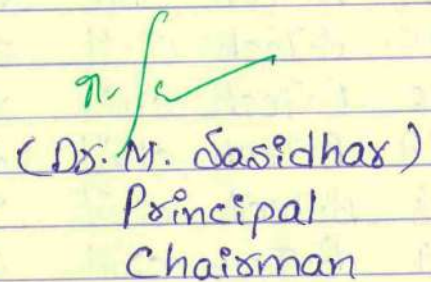 (Dr. M. Sasidhar)
Principal
Chairman